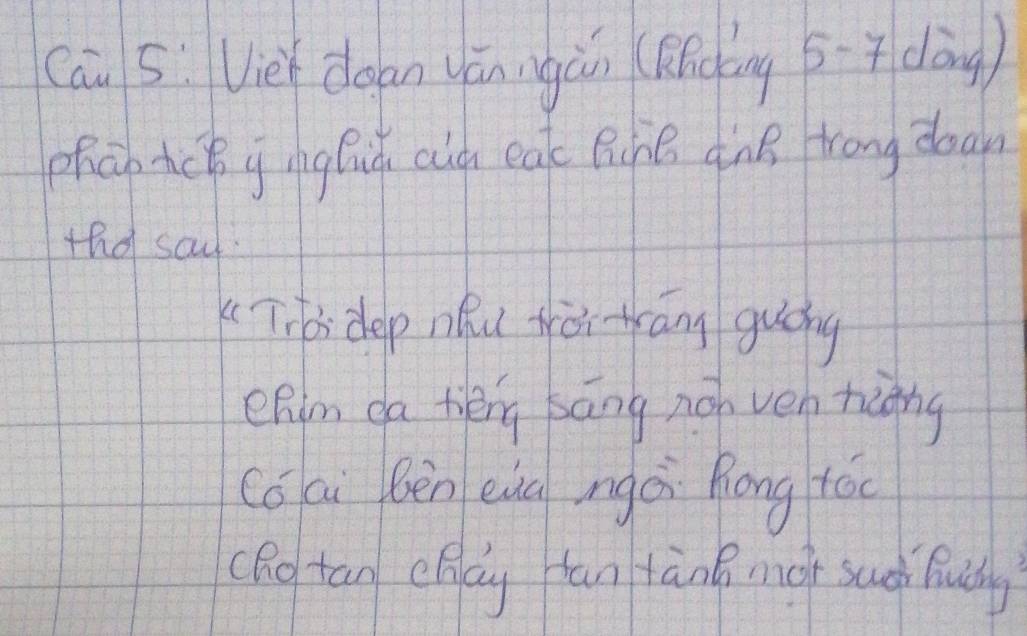 Câu 5: Viết đoạn văn ngắn (khoảng 5-7 dòng)
phân tích ý nghĩa của các hình ảnh trong đoạn
thơ sau:
"Trời đẹp như trời tráng gương
Chim ca tiếng sáng rõn ven tường
Có ai bên cửa ngồi hong tóc
Cho tan chảy tan tành một suối hương"